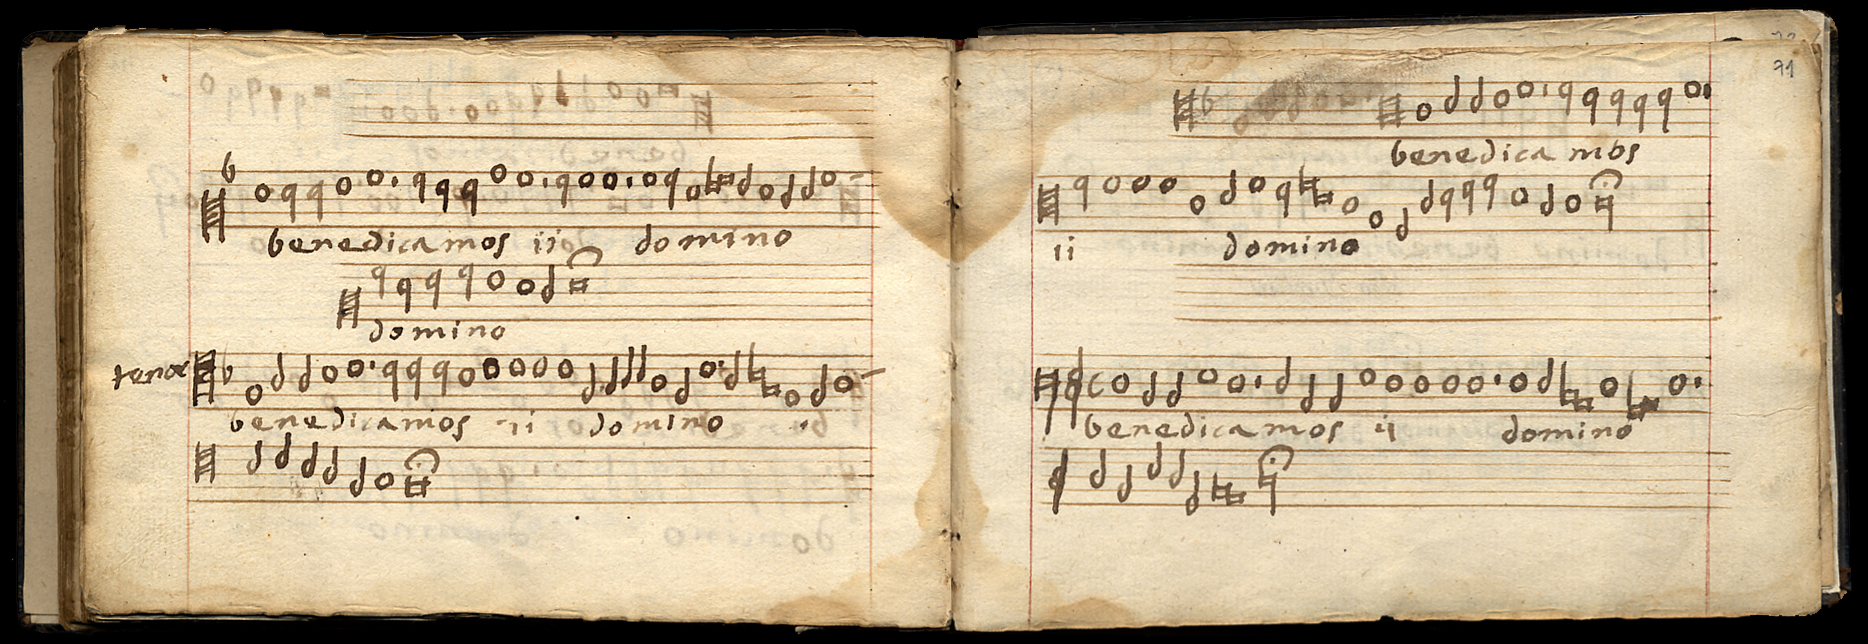 benedicamos ii domino
domino
tenor
benedicamos ii domino ii
71
benedica mos
ii domino
benedicamos ii domino